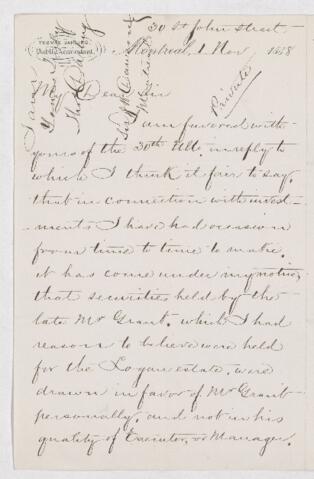 30 St John Street
Montreal, 1 Nov 1878
Private
My Dear Sir
I am favored with
yours of the 30th Ulto. in reply to
which I think it fair to say,
that in connection with invest-
-ments I have had occasion
from time to time to make,
it has come under my notice,
that securities held by the
late Mr Grant, which I had
reason to believe were held
for the Logan estate, were
drawn in favor of Mr Grant
personally, and not in his
quality of Executor, or Manager.